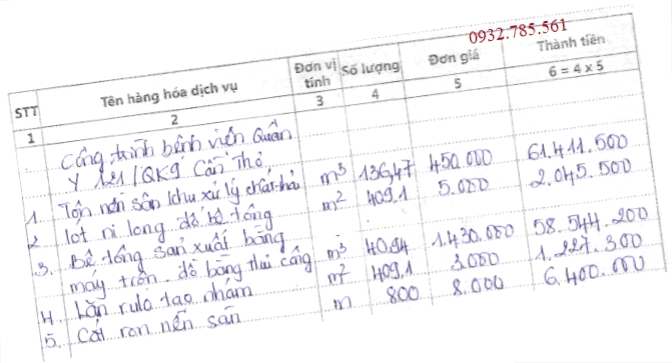 0932.785.561
STT Tên hàng hóa dịch vụ Đơn vị tính Số lượng Đơn giá Thành tiền
1 2 3 4 5 6 = 4 x 5
Công trình bệnh viện Quân
Y 121/QK9 Cần Thơ
1. Tôn nền sân khu xử lý chất thải m³ 136,47 450.000 61.411.500
2 lót ni long đổ bê tông m² 409,1 5.000 2.045.500
3. Bê tông sản xuất bằng
máy trộn. đổ bằng thủ công m³ 40.94 1.430.000 58.544.200
4 Lăn rulo tạo nhám m² 409,1 3.000 1.227.300
5. Cắt ron nền sân m 800 8.000 6.400.000